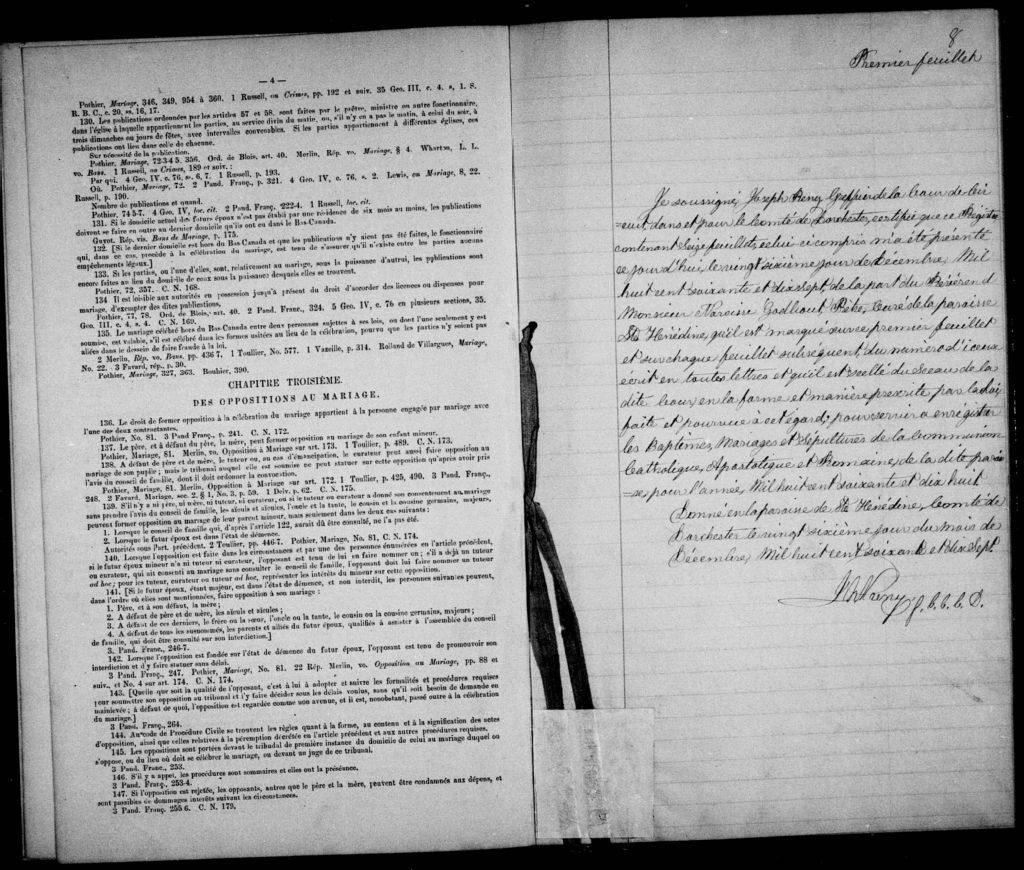 — 4 —
Pothier, Mariage, 346, 349, 954 à 360. 1 Russell, on Crimes, pp. 192 et suiv. 35 Geo. III, c. 4. s, 1. S.
R. B. C., c. 20, ss. 16, 17.
130. Les publications ordonnées par les articles 57 et 58, sont faites par le prêtre, ministre ou autre fonctionnaire,
dans l'église à laquelle appartiennent les parties, au service divin du matin, ou, s'il n'y en a pas le matin, à celui du soir, à
trois dimanches ou jours de fêtes, avec intervalles convenables. Si les parties appartiennent à différentes églises, ces
publications ont lieu dans celle de chacune.
Sur nécessité de la publication.
Pothier, Mariage, 72-3-4 5. 356. Ord. de Blois, art. 40. Merlin, Rép. vo. Mariage, § 4. Wharton, L. L.
vo. Bans. 1 Russell, on Crimes, 189 et suiv. :
Par qui. 4 Geo. IV, c. 76, ss. 6, 7. 1 Russell, p. 193.
Où. Pothier, Mariage, 72. 2 Pand. Franç., p. 321. 4 Geo. IV, c. 76, s. 2. Lewis, on Mariage, 8, 22.
Russell, p. 190.
Nombre de publications et quand.
Pothier, 74 5-7. 4 Geo. IV, loc. cit. 2 Pand. Franç., 222-4. 1 Russell, loc. cit.
131. Si le domicile actuel des futurs époux n'est pas établi par une résidence de six mois au moins, les publications
doivent se faire en outre au dernier domicile qu'ils ont eu dans le Bas-Canada.
Guyot. Rép. vis. Bans de Mariage, p. 175.
132. [Si le dernier domicile est hors du Bas-Canada et que les publications n'y aient pas été faites, le fonctionnaire
qui, dans ce cas, précède à la célébration du mariage, est tenu de s'assurer qu'il n'existe entre les parties aucuns
empêchements légaux.]
133. Si les parties, ou l'une d'elles, sont, relativement au mariage, sous la puissance d'autrui, les publications sont
encore faites au lieu du domicile de ceux sous la puissance desquels elles se trouvent.
Pothier, 72, 357. C. N. 168.
134 Il est loisible aux autorités en possession jusqu'à présent du droit d'accorder des licences ou dispenses pour
mariage, d'exempter des dites publications.
Pothier, 77, 78. Ord. de Blois, art. 40. 2 Pand. Franç., 324. 5 Geo. IV, c. 76 en plusieurs sections, 35.
Geo. III. c. 4, s. 4. C. N. 169.
135. Le mariage célébré hors du Bas-Canada entre deux personnes sujettes à ses lois, ou dont l'une seulement y est
soumise, est valable, s'il est célébré dans les formes usitées au lieu de la célébration, pourvu que les parties n'y soient pas
allées dans le dessein de faire fraude à la loi.
2 Merlin, Rép. vo. Bans, pp. 436 7. 1 Toullier, No. 577. 1 Vazeille, p. 314. Rolland de Villargues, Mariage,
No. 22. - 3 Favard, rép., p. 30.
Pothier, Mariage, 327, 363. Bouhier, 390.
CHAPITRE TROISIÈME.
DES OPPOSITIONS AU MARIAGE.
136. Le droit de former opposition à la célébration du mariage appartient à la personne engagée par mariage avec
l'une des deux contractantes.
Pothier, No. 81. 3 Pand Franç., p. 241. C. N. 172.
137. Le père, et à défaut du père, la mère, peut former opposition au mariage de son enfant mineur.
Pothier, Mariage, 81. Merlin, vo. Opposition à Mariage sur art. 173. 1 Toullier, p. 489. C. N. 173.
138. A défaut de père et de mère, le tuteur ou, au cas d'émancipation, le curateur peut aussi faire opposition au
mariage de son pupille ; mais le tribunal auquel elle est soumise ne peut statuer sur cette opposition qu'après avoir pris
l'avis du conseil de famille, dont il doit ordonner la convocation.
Pothier, Mariage, 81. Merlin, Opposition à Mariage sur art. 172. 1 Toullier, p. 425, 490. 3 Pand. Franç.,
248. 2 Favard, Mariage, sec. 2. § 1, No. 3, p. 59. 1 Delv. p. 62. C. N. 175.
139. S'il n'y a ni père, ni mère, ni tuteur, ni curateur, ou si le tuteur ou curateur a donné son consentement au mariage
sans prendre l'avis du conseil de famille, les aïeuls et aïeules, l'oncle et la tante, le cousin et la cousine germains, majeurs,
peuvent former opposition au mariage de leur parent mineur, mais seulement dans les deux cas suivants :
1. Lorsque le conseil de famille qui, d'après l'article 122, aurait dû être consulté, ne l'a pas été.
2. Lorsque le futur époux est dans l'état de démence.
Autorités sous l'art. précédent. 2 Toullier, pp. 446-7. Pothier, Mariage, No. 81, C. N. 174.
140. Lorsque l'opposition est faite dans les circonstances et par une des personnes énumérées en l'article précédent,
si le futur époux mineur n'a ni tuteur ni curateur, l'opposant est tenu de lui en faire nommer un ; s'il a déjà un tuteur
ou curateur, qui ait consenti au mariage sans consulter le conseil de famille, l'opposant doit lui faire nommer un tuteur
ad hoc ; pour les tuteur, curateur ou tuteur ad hoc, représenter les intérêts du mineur sur cette opposition.
141. [Si le futur époux, étant majeur, est dans l'état de démence, et non interdit, les personnes suivantes peuvent,
dans l'ordre où elles sont mentionnées, faire opposition à son mariage :
1. Père, et à son défaut, la mère ;
2. A défaut de père et de mère, les aïeuls et aïeules ;
3. A défaut de ces derniers, le frère ou la sœur, l'oncle ou la tante, le cousin ou la cousine germains, majeurs ;
4. A défaut de tous les susnommés, les parents et alliés du futur époux, qualifiés à assister à l'assemblée du conseil
de famille, qui doit être consulté sur son interdiction.]
3. Pand. Franç., 246-7.
142. Lorsque l'opposition est fondée sur l'état de démence du futur époux, l'opposant est tenu de promouvoir son
interdiction et d'y faire statuer sans délai.
3 Pand. Franç., 247. Pothier, Mariage, No. 81. 22 Rép. Merlin, vo. Opposition au Mariage, pp. 88 et
suiv., et No. 4 sur art. 174. C. N. 174.
143. [Quelle que soit la qualité de l'opposant, c'est à lui à adopter et suivre les formalités et procédures requises
pour soumettre son opposition au tribunal et l'y faire décider sous les délais voulus, sans qu'il soit besoin de demande en
mainlevée ; à défaut de quoi, l'opposition est regardée comme non avenue, et il est, nonobstant, passé outre à la célébration
du mariage.]
3 Pand. Franç., 264.
144. Au code de Procédure Civile se trouvent les règles quant à la forme, au contenu et à la signification des actes
d'opposition, ainsi que celles relatives à la péremption décrétée en l'article précédent et aux autres procédures requises.
145. Les oppositions sont portées devant le tribunal de première instance du domicile de celui au mariage duquel on
s'oppose, ou du lieu où doit se célébrer le mariage, ou devant un juge de ce tribunal.
3 Pand. Franç., 253.
146. S'il y a appel, les procédures sont sommaires et elles ont la préséance.
3 Pand. Franç., 253-4.
147. Si l'opposition est rejetée, les opposants, autres que le père et la mère, peuvent être condamnés aux dépens, et
sont passibles de dommages intérêts suivant les circonstances.
3 Pand. Franç. 255 6. C. N. 179.
8
Premier feuillet
Je soussigné, Joseph Remy Greffier de la Cour de Cir
=cuit, dans et pour le Comté de Dorchester, certifie que ce Régistre
contenant Seize feuillets, celui-ci compris m'a été présenté
ce jour d'hui, le vingt sixième jour de Décembre, Mil
huit cent soixante et dix sept, de la part du Révérend
Monsieur Narcisse Godbout, Ptre, Curé de la paroisse
Ste Hénédine, qu'il est marqué sur ce premier feuillet
et sur chaque feuillet subséquent du numéro d'iceux
écrit en toutes lettres et qu'il est scellé du Sceau de la
dite Cour, en la forme et manière prescrite par la loi
faite et pourvue à cet égard, pour servir a enregistrer
les Baptêmes, Mariages et Sépultures de la Communion
Catholique, Apostolique et Romaine, de la dite parois
=se, pour l'année, Mil huit cent soixante et dix huit
Donné en la paroisse de Ste Hénédine, Comté de
Dorchester le vingt sixième jour du mois de
Décembre, Mil huit cent soixante et dix Sept.
g. C. C. C. D.